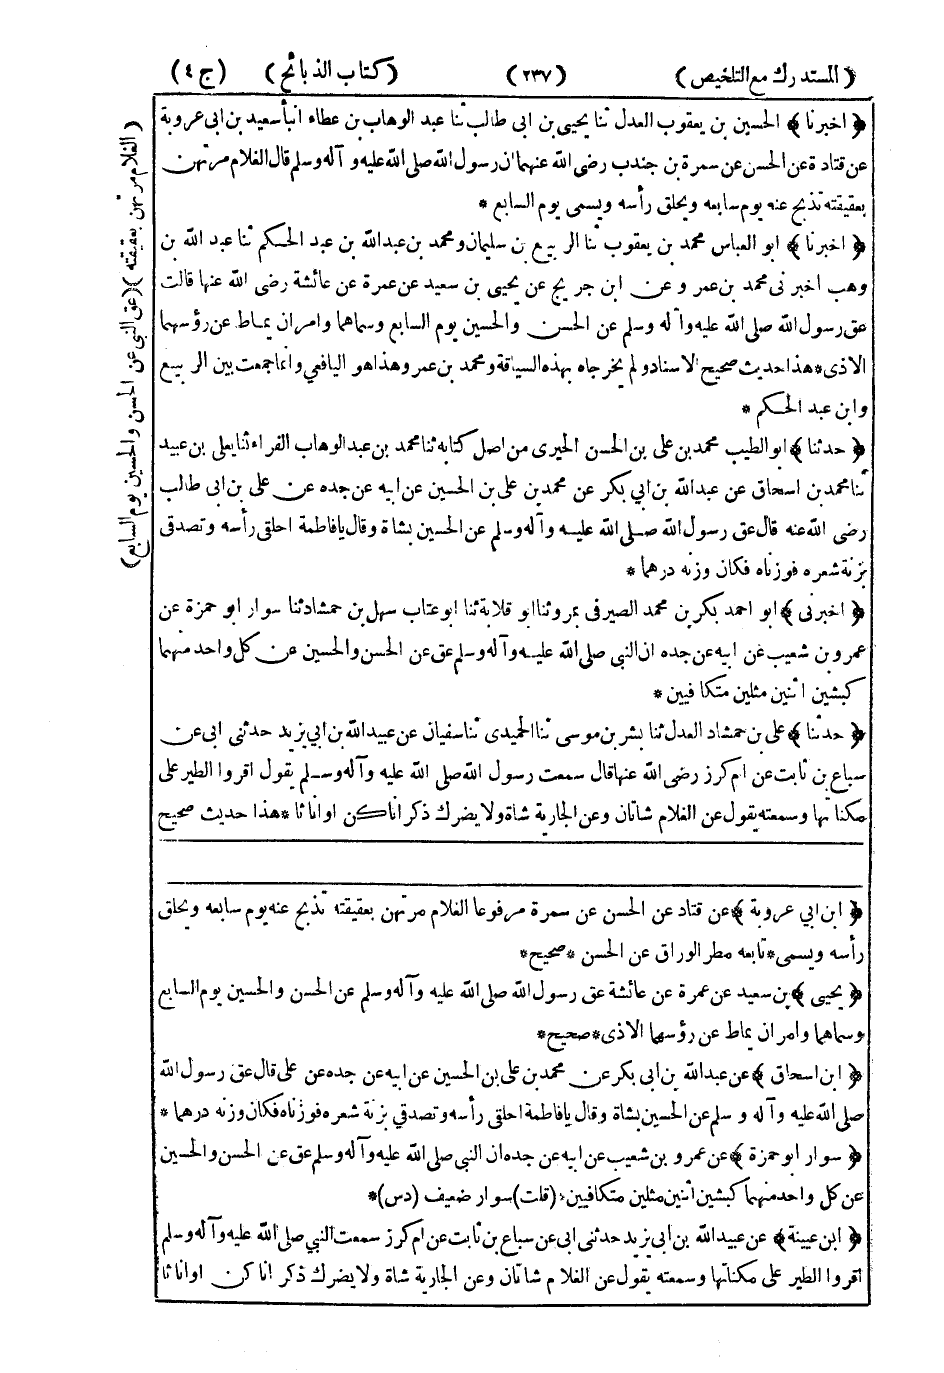 (المستدرك مع التلخيص) (٢٣٧) (كتاب الذبائح) (ج ٤)
﴿ اخبرنا ﴾ الحسين بن يعقوب العدل ثنا يحيى بن ابى طالب ثنا عبد الوهاب بن عطاء انبأ سعيد بن ابى عروبة
عن قتادة عن الحسن عن سمرة بن جندب رضى الله عنهما ان رسول الله صلى الله عليه و آله وسلم قال الغلام مرتهن
بعقيقته تذبح عنه يوم سابعه ويحلق رأسه ويسمى يوم السابع *
﴿ اخبرنا ﴾ ابو العباس محمد بن يعقوب ثنا الربيع بن سليمان ومحمد بن عبدالله بن عبد الحكم ثنا عبد الله بن
وهب اخبرنى محمد بن عمر و عن ابن جريج عن يحيى بن سعيد عن عمرة عن عائشة رضى الله عنها قالت
عق رسول الله صلى الله عليه وآله وسلم عن الحسن والحسين يوم السابع وسماهما وامر ان يماط عن رؤسهما
الاذى*هذا حديث صحيح الاسناد ولم يخرجاه بهذه السياقة ومحمد بن عمر وهذا هو اليافعي وانما جمعت بين الربيع
وابن عبد الحكم *
﴿ حدثنا ﴾ ابو الطيب محمد بن على بن الحسن الحيرى من اصل كتابه ثنا محمد بن عبد الوهاب الفراء ثنا يعلى بن عبيد
ثنا محمد بن اسحاق عن عبدالله بن ابي بكر عن محمد بن على بن الحسين عن ابيه عن جده عن على بن ابى طالب
رضى الله عنه قال عق رسول الله صلى الله عليه وآله وسلم عن الحسين بشاة وقال يا فاطمة احلقى رأسه وتصدقى
بزنة شعره فوزناه فكان وزنه درهما *
﴿ اخبرنى ﴾ ابو احمد بكر بن محمد الصيرفى بمرو ثنا ابو قلابة ثنا ابو عتاب سهل بن حمشاد ثنا سوار ابو حمزة عن
عمرو بن شعيب عن ابيه عن جده ان النبي صلى الله عليه وآله وسلم عق عن الحسن والحسين عن كل واحد منهما
كبشين اثنين مثلين متكافيين *
﴿ حدثنا ﴾ على بن حمشاد العدل ثنا بشر بن موسى ثنا الحميدى ثنا سفيان عن عبيد الله بن ابي يزيد حدثنى ابى عن
سباع بن ثابت عن ام كرز رضى الله عنها قال سمعت رسول الله صلى الله عليه وآله وسلم يقول اقروا الطير على
مكناتها وسمعته يقول عن الغلام شاتان وعن الجارية شاة ولا يضرك ذكرانا كن او اناثا*هذا حديث صحيح
﴿ ابن ابي عروبة ﴾عن قتاد عن الحسن عن سمرة مرفوعا الغلام مرتهن بعقيقته تذبح عنه يوم سابعه ويحلق
رأسه ويسمى*تابعه مطر الوراق عن الحسن *صحيح*
﴿ يحيى ﴾بن سعيد عن عمرة عن عائشة عق رسول الله صلى الله عليه وآله وسلم عن الحسن والحسين يوم السابع
وسماهما وامر ان يماط عن رؤسهما الاذى*صحيح*
﴿ ابن اسحاق ﴾عن عبدالله بن ابى بكر عن محمد بن على بن الحسين عن ابيه عن جده عن على قال عق رسول الله
صلى الله عليه وآله وسلم عن الحسين بشاة وقال يا فاطمة احلقى رأسه وتصدقي بزنة شعره فوزناه فكان وزنه درهما *
﴿ سوار ابو حمزة ﴾عن عمرو بن شعيب عن ابيه عن جده ان النبي صلى الله عليه وآله وسلم عق عن الحسن والحسين
عن كل واحد منهما كبشين اثنين مثلين متكافيين*(قلت)سوار ضعيف (دس)*
﴿ ابن عيينة ﴾ عن عبيد الله بن ابي يزيد حدثنى ابى عن سباع بن ثابت عن ام كرز سمعت النبي صلى الله عليه وآله وسلم
اقروا الطير على مكناتها وسمعته يقول عن الغلام شاتان وعن الجارية شاة ولا يضرك ذكرانا كن او اناثا
(الغلام مرتهن بعقيقته)(عق النبي عن الحسن والحسين يوم السابع)